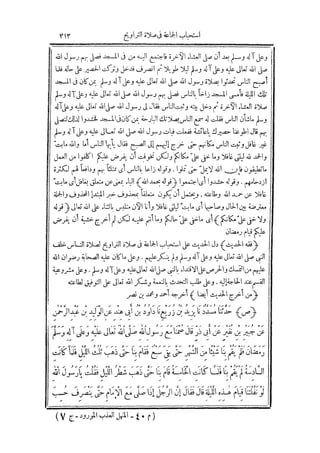 استحباب الجماعة فى صلاة التراويح ٣١٣
وعلى آله وسلم بعد أن صلى العشاء الآخرة فاجتمع اليه من فى المسجد فصلى بهم رسول الله
صلى الله تعالى عليه وعلى آله وسلم ليلا طويلا ثم انصرف فدخل وترك الحصير على حاله فلما
أصبح الناس تحدثوا بصلاة رسول الله صلى الله تعالى عليه وعلى آله وسلم بمن كان فى المسجد
تلك الليلة فأمسى المسجد زاخا بالناس فصلى بهم رسول الله صلى الله تعالى عليه وعلى آله وسلم
صلاة العشاء الآخرة ثم دخل بيته وثبت الناس فقال لى رسول الله صلى الله تعالى عليه وعلى آله
وسلم ماشأن الناس فقلت له سمع الناس بصلاتك البارحة بمن كان فى المسجد فحشدوا لذلك لتصلى
بهم قال اطو عنا حصيرك ياعائشة ففعلت فبات رسول الله صلى الله تعالى عليه وعلى آله وسلم
غير غافل وثبت الناس مكانهم حتى خرج إليهم إلى الصبح فقال يأيها الناس أما والله مابت
والحمد لله ليلتى غافلا وما خفى علىّ مكانكم ولكنى تخوفت أن يفرض عليكم اكلفوا من العمل
ماتطيقون فإن الله لايمل حتى تملوا. وقوله زاخا بالناس أى متلئا بهم ودافعا لهم لكثرة
ازدحامهم. وقوله حشدوا أى اجتمعوا ﴿قوله بحمد الله﴾ الباء بمعنى عن متعلق بغافل أى مابت
غافلا عن حمد الله وطاعته. ويحتمل أن يكون متعلقا بمحذوف خبر لمبتدإ محذوف والجملة
معترضة بين الحال وصاحبها أى مابت ليلتى غافلا وأنا الآن متلبس بالثناء على الله تعالى ﴿قوله
ولا خفى علىّ مكانكم﴾ أى ماخفى علىّ حالكم وما أنتم عليه لكن لم أخرج خشية أن يفرض
عليكم قيام رمضان
﴿فقه الحديث﴾ دل الحديث على استحباب الجماعة فى صلاة التراويح لصلاة الناس خلف
النبى صلى الله تعالى عليه وعلى آله وسلم ولم ينكر عليهم. وعلى ماكان عليه الصحابة رضوان الله
عليهم من التمسك والحرص على الاقتداء بالنبى صلى الله تعالى عليه وعلى آله وسلم. وعلى مشروعية
القسم عند الحاجة إليه. وعلى طلب التحدث بالنعمة وشكر الله تعالى على التوفيق لطاعته
﴿من أخرج الحديث أيضا﴾ أخرجه أحمد ومحمد بن نصر
﴿ص﴾ حَدَّثَنَا مُسَدَّدٌ نَا يَزِيدُ بْنُ زُرَيْعٍ نَا دَاوُدُ بْنُ أَبِى هِنْدٍ عَنِ الْوَلِيدِ بْنِ عَبْدِ الرَّحْمَنِ
عَنْ جُبَيْرِ بْنِ نُفَيْرٍ عَنْ أَبِى ذَرٍّ قَالَ صُمْنَا مَعَ رَسُولِ اللهِ صَلَّى اللهُ تَعَالَى عَلَيْهِ وَعَلَى آلِهِ وَسَلَّمَ
رَمَضَانَ فَلَمْ يَقُمْ بِنَا شَيْئًا مِنَ الشَّهْرِ حَتَّى بَقِىَ سَبْعٌ فَقَامَ بِنَا حَتَّى ذَهَبَ ثُلُثُ اللَّيْلِ فَلَمَّا كَانَتِ
السَّادِسَةُ لَمْ يَقُمْ بِنَا فَلَمَّا كَانَتِ الْخَامِسَةُ قَامَ بِنَا حَتَّى ذَهَبَ شَطْرُ اللَّيْلِ فَقُلْتُ يَارَسُولَ اللهِ
لَوْ نَفَّلْتَنَا قِيَامَ هَذِهِ اللَّيْلَةِ قَالَ فَقَالَ إِنَّ الرَّجُلَ إِذَا صَلَّى مَعَ الْإِمَامِ حَتَّى يَنْصَرِفَ حُسِبَ
(م ٤٠ - المنهل العذب المورود - ج ٧)